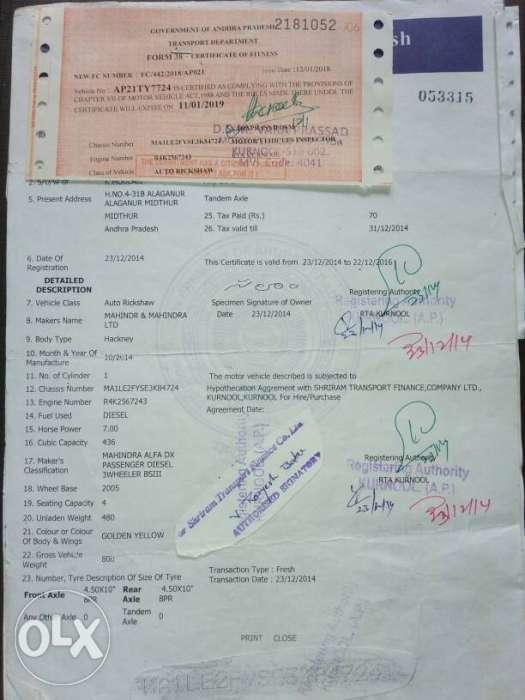 GOVERNMENT OF ANDHRA PRADESH 2181052 /06
TRANSPORT DEPARTMENT
FORM 38 - CERTIFICATE OF FITNESS
NEW FC NUMBER : FC/442/2018/AP021 Date :12/01/2018
Vehicle No : AP21TY7724 IS CERTIFIED AS COMPLYING WITH THE PROVISIONS OF
CHAPTER VII OF MOTOR VEHICLE ACT, 1988 AND THE RULES MADE THERE UNDER. THE
CERTIFICATE WILL EXPIRE ON 11/01/2019
Chassis Number MA1LE2FYSE3K84724 MOTOR VEHICLES INSPECTOR
Engine Number R4K2567243 KURNOOL-518 002.
Class of Vehicle AUTO RICKSHAW MVI Code: 4041
sh
053315
5. Present Address H.NO.4-31B ALAGANUR Tandem Axle
ALAGANUR MIDTHUR
MIDTHUR 25. Tax Paid (Rs.) 70
Andhra Pradesh 26. Tax valid till 31/12/2014
6. Date Of 23/12/2014 This Certificate is valid from 23/12/2014 to 22/12/2016
Registration
DETAILED
DESCRIPTION Registering Authority
7. Vehicle Class Auto Rickshaw Specimen Signature of Owner Registering Authority
8. Makers Name MAHINDR & MAHINDRA Date 23/12/2014 RTA KURNOOL
LTD KURNOOL (A.P.)
23/12/14
23/12/14
9. Body Type Hackney
10. Month & Year Of 10/2014
Manufacture
11. No. of Cylinder 1 The motor vehicle described is subjected to
12. Chassis Number MA1LE2FYSE3K84724 Hypothecation Aggrement with SHRIRAM TRANSPORT FINANCE,COMPANY LTD.,
KURNOOL,KURNOOL For Hire/Purchase
13. Engine Number R4K2567243
Agreement Date:
14. Fuel Used DIESEL
15. Horse Power 7.00
16. Cubic Capacity 436
17. Maker's MAHINDRA ALFA DX Registering Authority
Classification PASSENGER DIESEL Registering Authority
3WHEELER BSIII RTA KURNOOL
KURNOOL (A.P.)
23/12/14
23/12/14
For Shriram Transport Finance Co. Ltd.
AUTHORISED SIGNATORY
18. Wheel Base 2005
19. Seating Capacity 4
20. Unladen Weight 480
21. Colour or Colour GOLDEN YELLOW
Of Body & Wings
22. Gross Vehicle 800
Weight
Transaction Type : Fresh
23. Number, Tyre Description Of Size Of Tyre Transaction Date : 23/12/2014
Front Axle 4.50X10" 8PR Rear Axle 4.50X10" 8PR
Any Other Axle 0 Tandem Axle 0
PRINT CLOSE
OLX